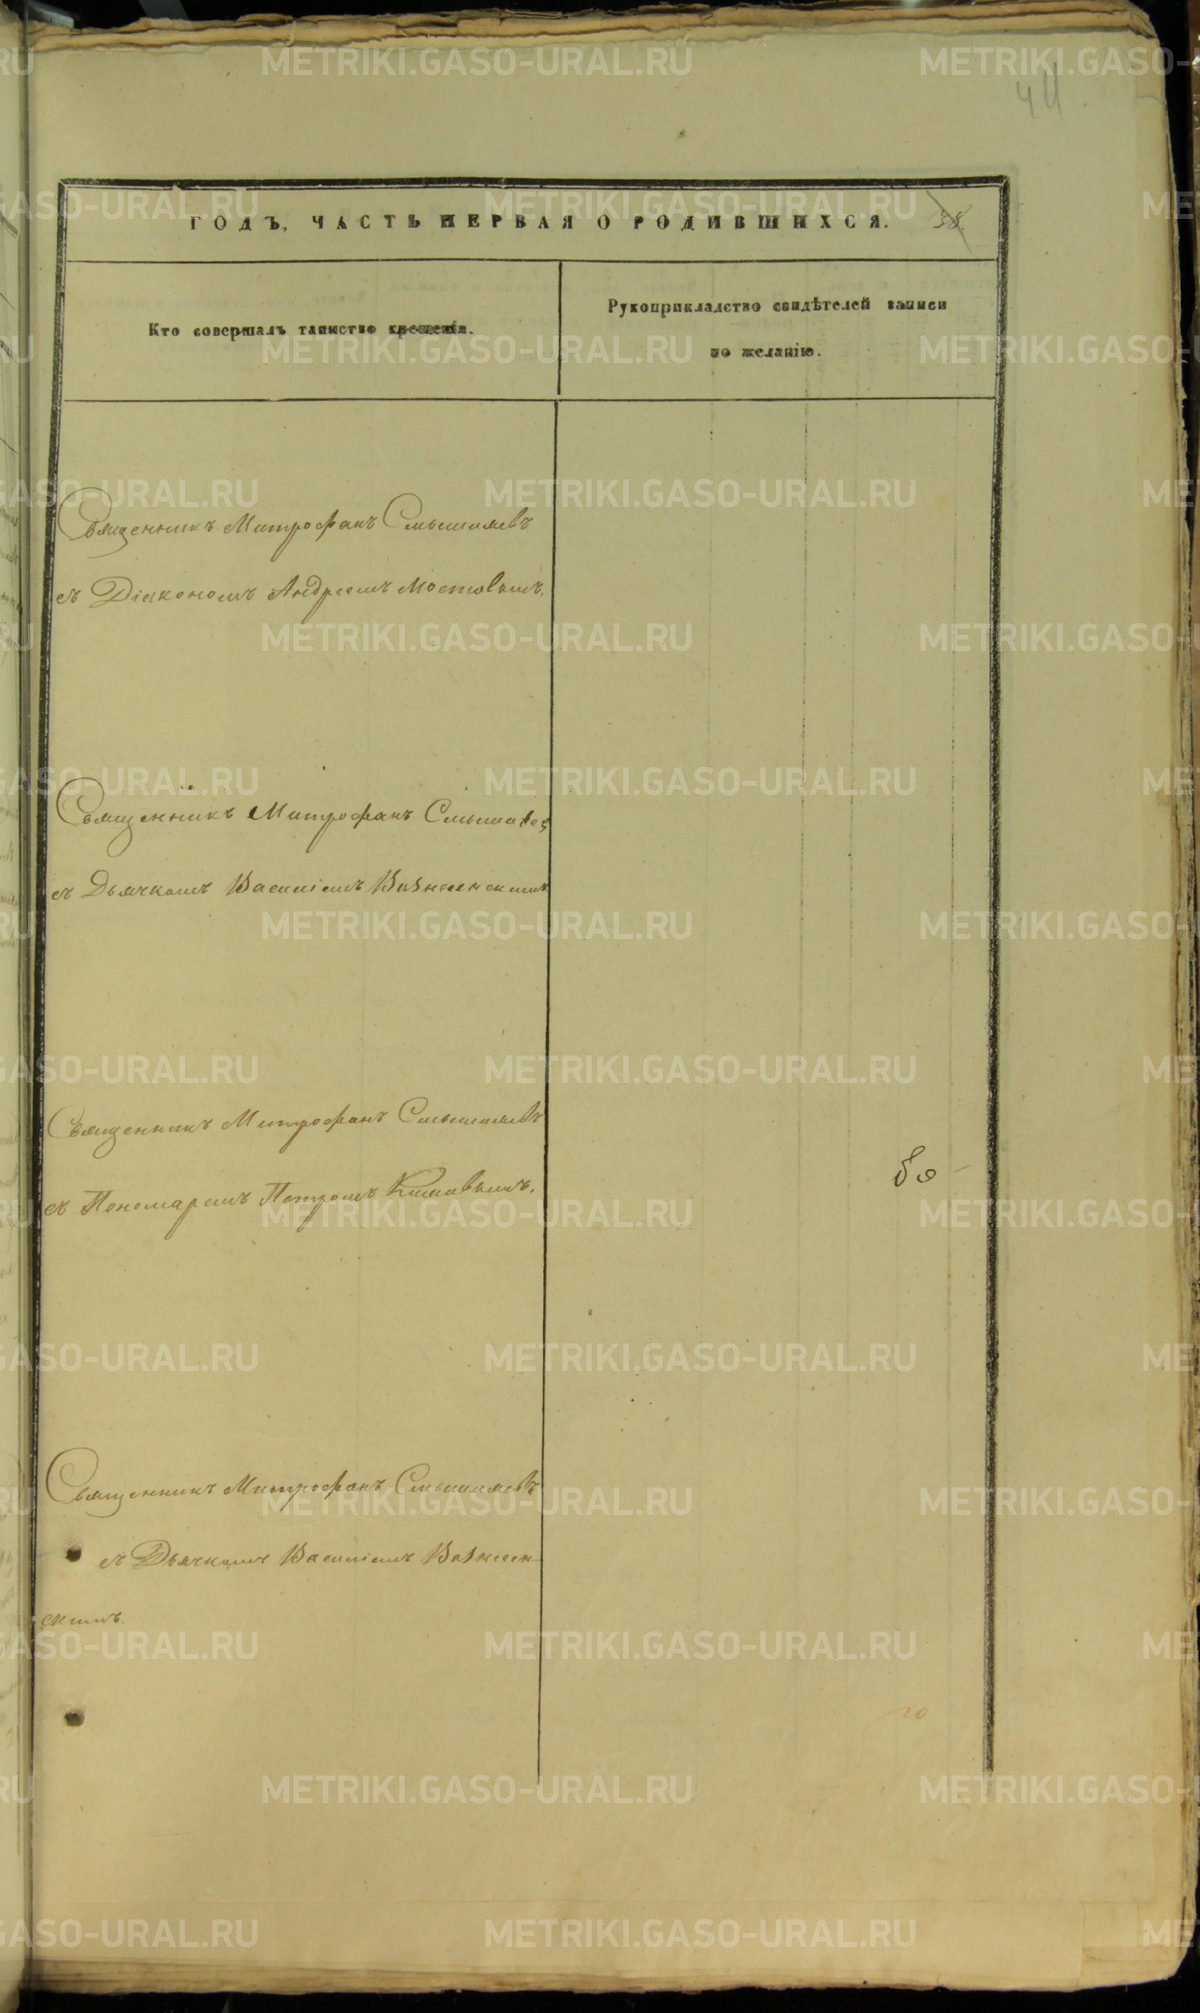 41
ГОДЪ, ЧАСТЬ ПЕРВАЯ О РОДИВШИХСЯ. 38.
Кто совершалъ таинство крещенія.
Рукоприкладство свидѣтелей записи
по желанію.
Священникъ Митрофанъ Смышляевъ
съ Діакономъ Андреемъ Мостовымъ.
Священникъ Митрофанъ Смышляевъ
съ Дьячкомъ Василіемъ Вознесенскимъ
Священникъ Митрофанъ Смышляевъ
съ Пономаремъ Петромъ
Священникъ Митрофанъ Смышляевъ
съ Дьячкомъ Василіемъ Вознесен-
скимъ.
METRIKI.GASO-URAL.RU